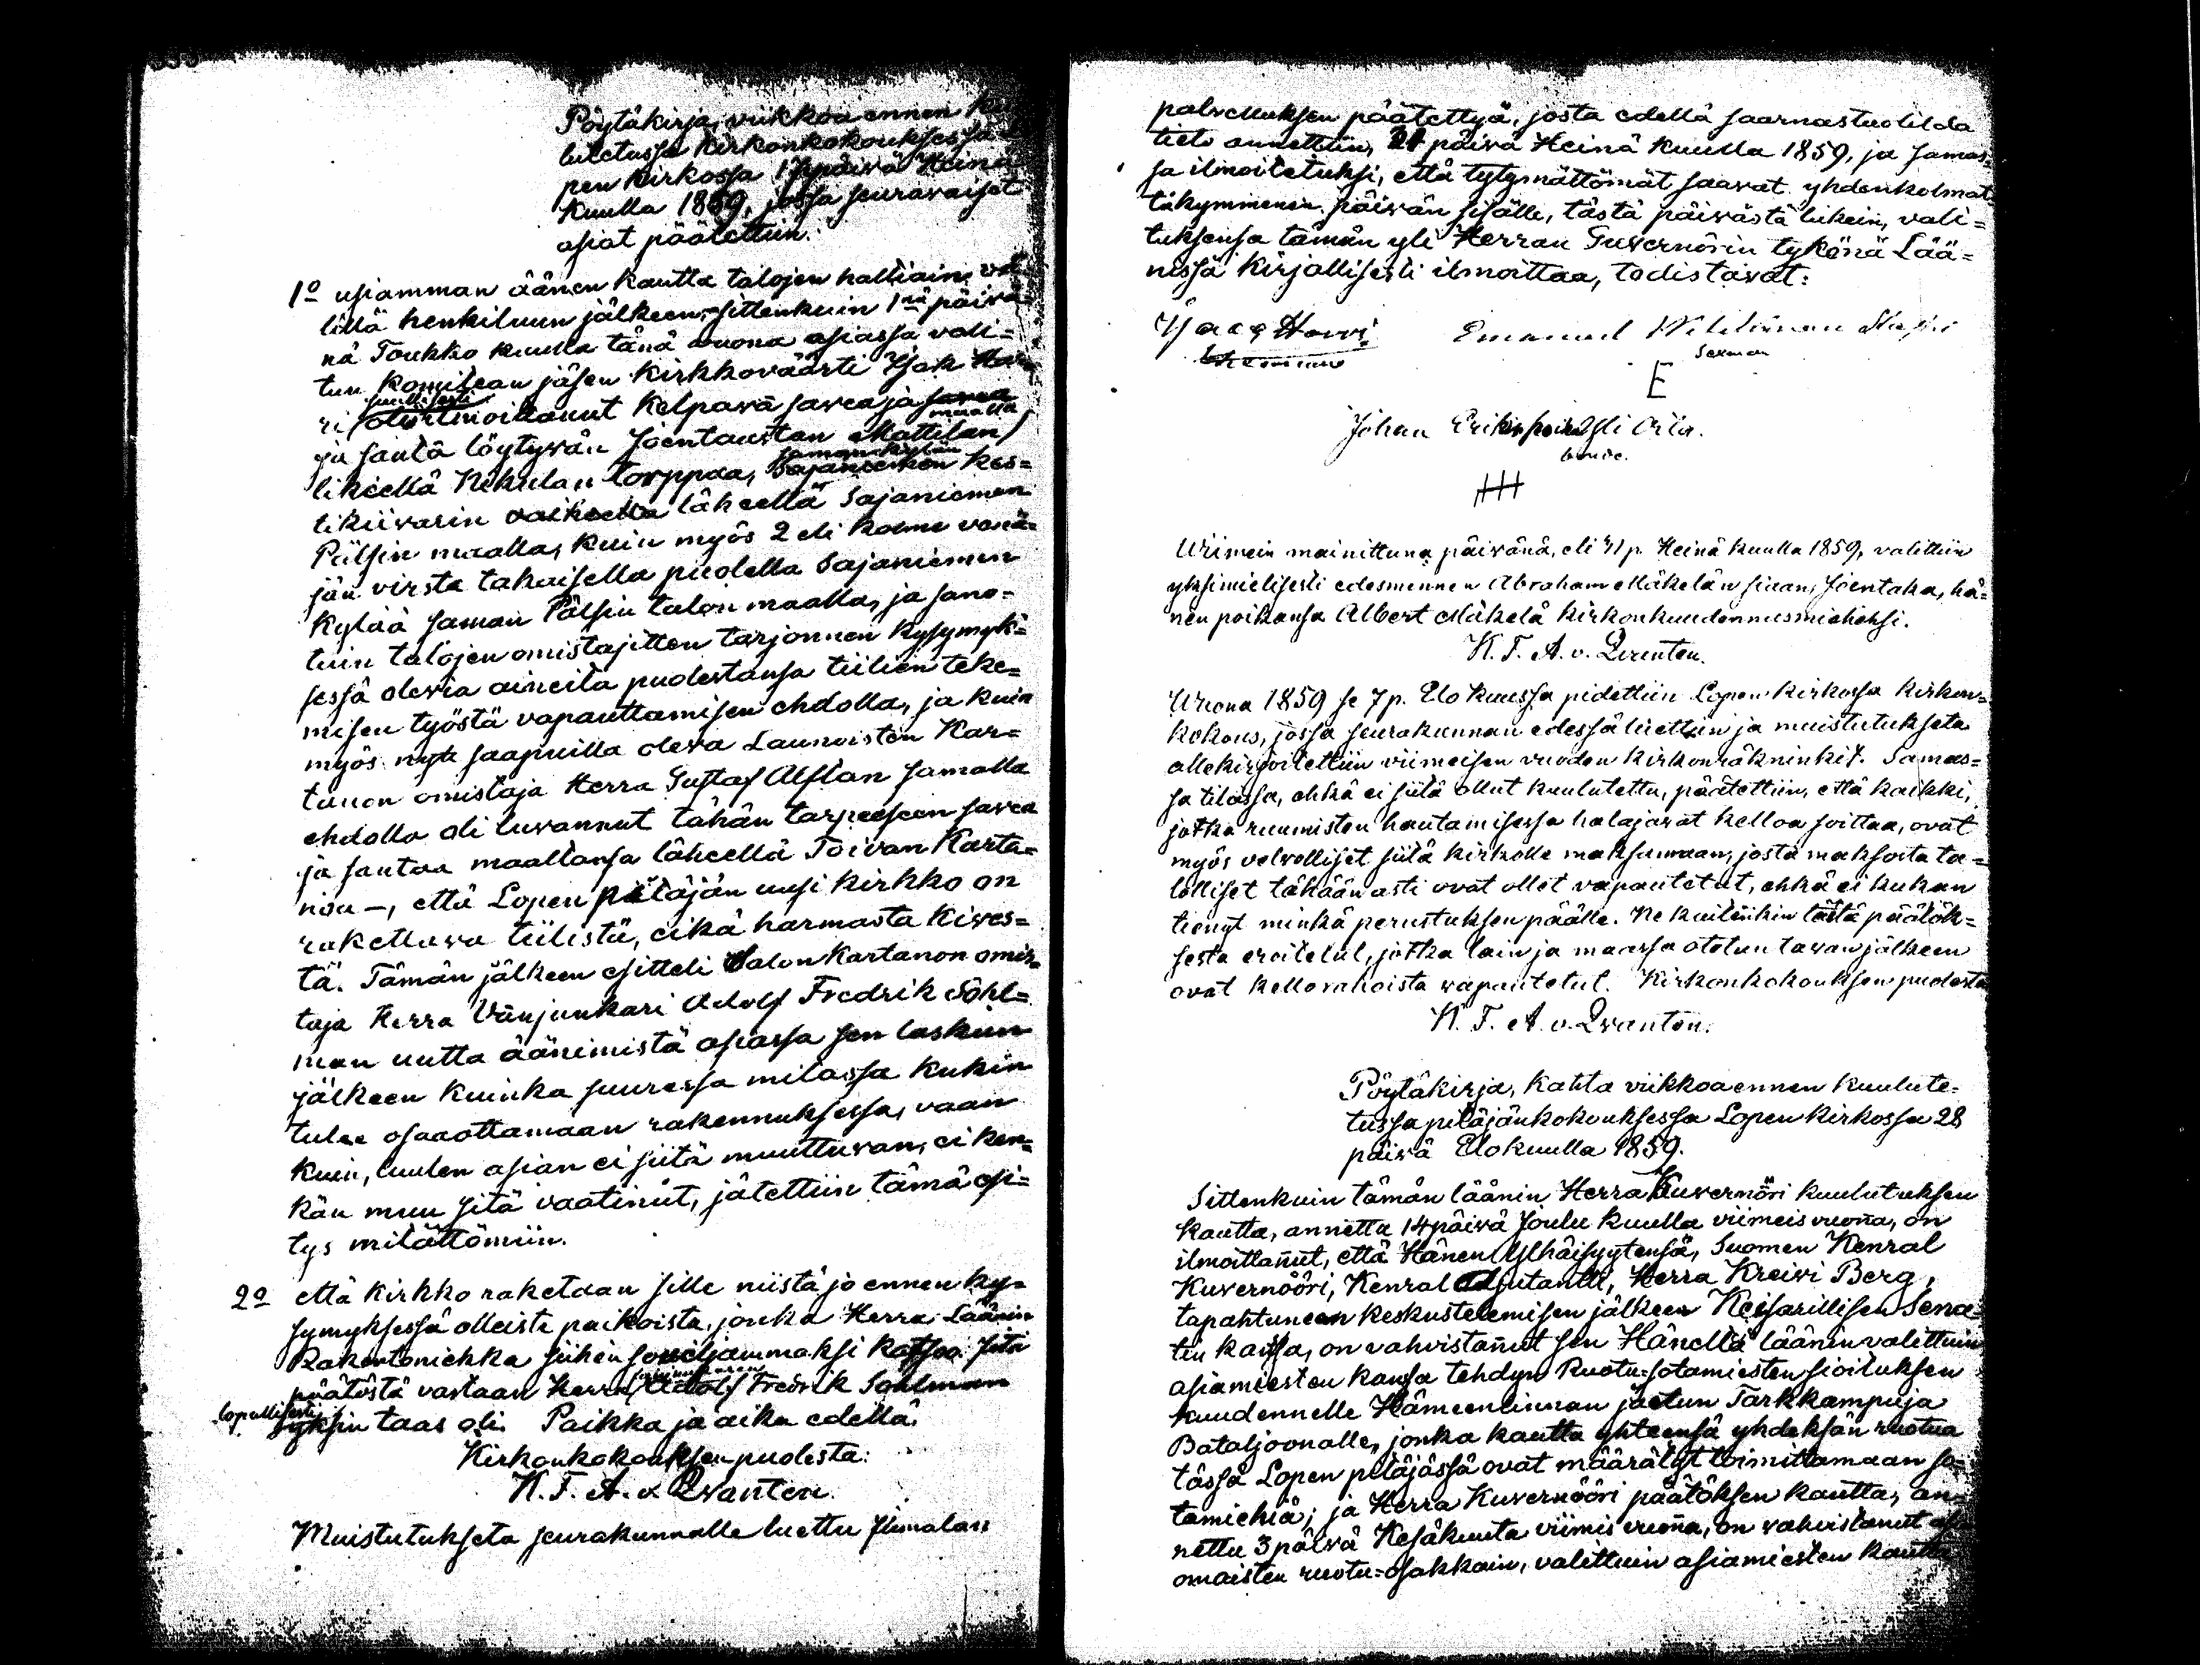 Pöytäkirja, viikkoa ennen
lutetussa Kirkonkokouksessa
pen Kirkossa 17 päivä Heinä
Kuulla 1859, jossa seuravaiset
asiat päätettiin:
1º usiamman äänen kautta talojen haltiain
lillä henkiluun jälkeen, sittenkuin 1nä päivä
nä Toukko kuulla tänä vuona asiassa vali=
tun Komitean jäsen Kirkkoväärti Isak Har
ri oli ilmoittanut Kelpavä savea ja
maalla
ja santa löytyvän Joentaustan Mattilan
samankylän
likeellä Kekulan torppaa, Sajaniemen Kes=
tikiivarin läheellä Sajaniemen
Pälsin maalla, kuin myös 2 eli kolme venä=
jän virsta takaisella puolella Sajaniemen
Kylää saman Pälsin talon maalla, ja sano=
tuin talojen omistajitten tarjonnen kysymyk=
sessä olevia aineita puolestansa tiilien teke=
misen työstä vapauttamisen ehdolla, ja kuin
myös nyt saapuilla oleva Launoisten Kar=
tanon omistaja Herra Gustaf Alftan samalla
ehdolla oli luvannut tähän tarpeeseen savea
ja santaa maallansa läheellä Toivan Karta=
noa —, että Lopen pitäjän uusi kirkko on
rakettava tiilistä, eikä harmasta kives=
tä. Tämän jälkeen esitteli Salon Kartanon omis=
taja Herra Vänjunkari Adolf Fredrik Sohl=
man uutta äänimistä asiassa sen laskun
jälkeen kuinka suuressa mitassa kukin
tulee osaaottamaan rakennuksessa, vaan
kuin, luulen asian ei siitä muuttuvan, ei ken=
kän muu sitä vaatinut, jätettiin tämä esi=
tys mitättömiin.
2º että kirkko raketaan sille niistä jo ennen ky=
symyksessä olleista paikoista, jonka Herra Läänin
Rakentoniekka siihen soveljammaksi katsoo. Sitä
päätöstä vastaan Herra Adolf Fredrik Sohlman
lopullisesti
yksin taas oli. Paikka ja aika edellä.
Kirkonkokouksen puolesta:
K. F. A. v. Qvanten.
Muistutukseta seurakunnalle luettu Jumalan
palveluksen päätettyä, josta edellä saarnastuolilda
tieto annettiin, 24 päivä Heinä kuulla 1859, ja samas=
sa ilmoitetuksi, että tytymättömät saavat yhdenkolmat
täkymmenen päivän sisälle, tästä päivästä lukein, vali=
tuksensa tämän yli Herran Guvernörin tykönä Lää=
nissä kirjallisesti ilmoittaa, todistavat:
Isac Harri Emanuel
Sexman
E
Johan Erikinpoika Ali Oila.
bonde.
Wiimein mainittuna päivänä, eli 31 p. Heinä kuulla 1859, valittiin
yksimielisesti edesmennen Abraham Mäkelän siaan, Joentaka, hä=
nen poikansa Albert Mäkelä kirkonkuudennusmieheksi.
K. F. A. v. Qvanten.
Wuona 1859 se 7 p. Elo kuussa pidettiin Lopen kirkossa kirkon=
kokous, jossa seurakunnan edessä luettiin ja muistutukseta
allekirjoitettiin viimeisen vuoden kirkonräkninkit. Samas=
sa tilassa, ehkä ei siitä ollut kuulutettu, päätettiin, että kaikki,
jotka ruumisten hautamisessa halajavat kelloa soittaa, ovat
myös velvolliset siitä kirkolle maksamaan, josta maksosta ta=
lolliset tähään asti ovat ollet vapautetut, ehkä ei kukan
tiengt minkä perustuksen päälle. Ne kuitenkin tästä päätök=
sesta eroitetut, jotka lain ja maassa otetun tavan jälkeen
ovat kellorahoista vapautetut. Kirkonkokouksen puolesta
K. F. A. v. Qvanten.
Pöytäkirja, kahta viikkoa ennen kuulute=
tussa pitäjänkokouksessa Lopen kirkossa 28
päivä Elokuulla 1859.
Sittenkuin tämän läänin Herra Kuvernööri kuulutuksen
kautta, annettu 14 päivä Joulu kuulla viimeis vuona, on
ilmoittanut, että Hänen Ylhäisyytensä, Suomen Kenral
Kuvernööri, Kenral Adjutantti, Herra Kreivi Berg,
tapahtuneen keskustelemisen jälkeen Keisarillisen Sena=
tin kanssa, on vahvistanut sen Hänellä läänin valittuin
asiamiesten kansa tehdyn Ruotu-sotamiesten sioituksen
kuudennelle Hämeenlinnan jaetun Tarkkampuja
Bataljoonalle, jonka kautta yhteensä yhdeksän ruotua
tässä Lopen pitäjässä ovat määrätyt toimittamaan so=
tamiehiä; ja Herra Kuvernööri päätöksen kautta, an=
nettu 3 päivä Kesäkuuta viimis vuona, on vahvistanut
omaisten ruotu=osakkain, valittuin asiamiesten kautta